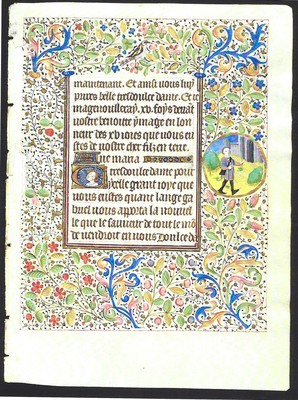 maintenant. Et ainsi vous luy
pryes belle tresdoulce dame. Et ie
magenouilleray. xv. foys deuāt
vostre benoite ymage en lon
neur des xv ioies que vous eu
stes de vostre chier filz en terre.
Aue maria
Tresdoulce dame pour
ycelle grant ioye que
vous eustes quant lange ga
briel vous apporta la nouuel
le que le sauueur de tout le mō
de viendroit en vous Doulce da